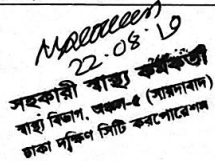 22.08.19
সহকারী স্বাস্থ্য কর্মকর্তা
স্বাস্থ্য বিভাগ, অঞ্চল-৫ (সায়দাবাদ)
ঢাকা দক্ষিণ সিটি করপোরেশন